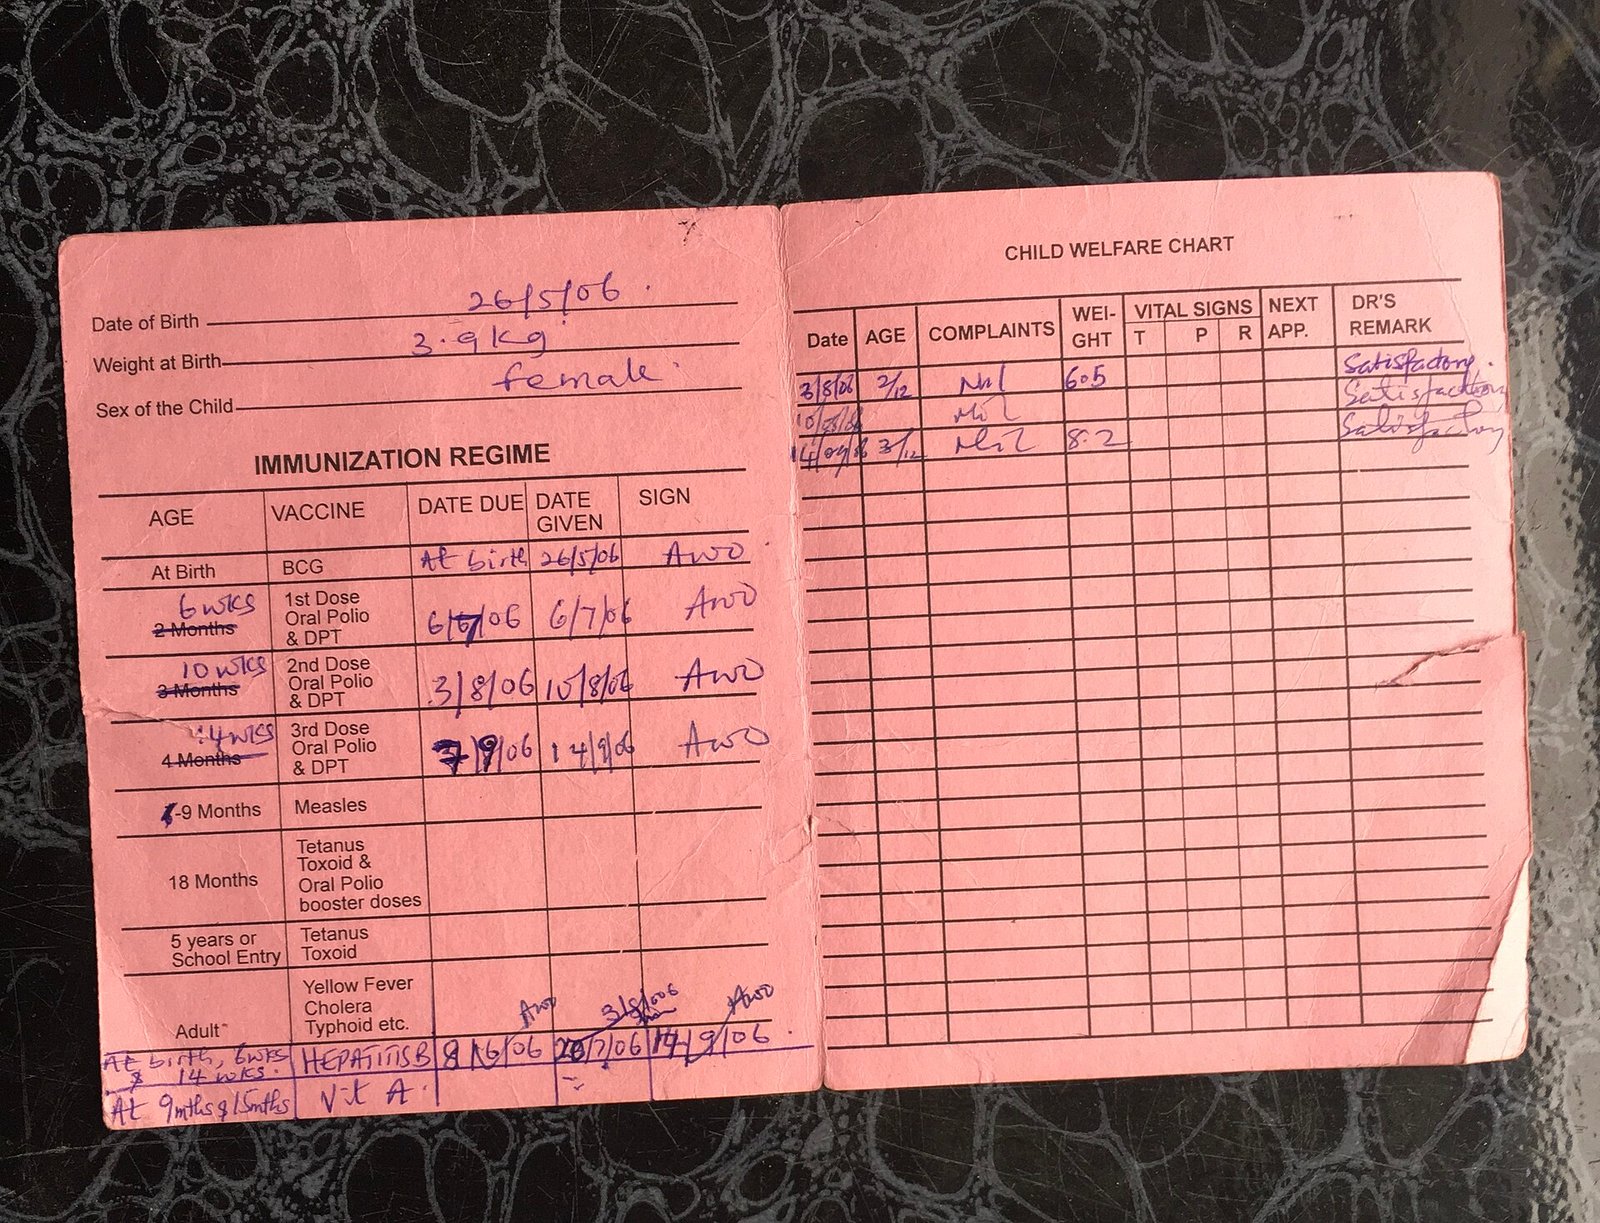 Date of Birth 26/5/06.
Weight at Birth 3.9kg
Sex of the Child female.
IMMUNIZATION REGIME
AGE VACCINE DATE DUE DATE GIVEN SIGN
At Birth BCG At birth 26/5/06 Awo
6 wks 2 Months 1st Dose Oral Polio & DPT 6/7/06 6/7/06 Awo
10 wks 3 Months 2nd Dose Oral Polio & DPT 3/8/06 10/8/06 Awo
14 wks 4 Months 3rd Dose Oral Polio & DPT 7/9/06 14/9/06 Awo
-9 Months Measles
18 Months Tetanus Toxoid & Oral Polio booster doses
5 years or School Entry Tetanus Toxoid
Adult Yellow Fever Cholera Typhoid etc.
Awo Awo
At birth, 6wks & 14 wks. HEPATITIS B 8/6/06 14/9/06.
At 9mths & 15mths Vit A.
CHILD WELFARE CHART
Date AGE COMPLAINTS WEI-GHT VITAL SIGNS T P R NEXT APP. DR'S REMARK
3/8/06 2/12 Nil 6.5 Satisfactory.
Nil Satisfactory
14/09/06 3/12 Nil 8.2 Satisfactory